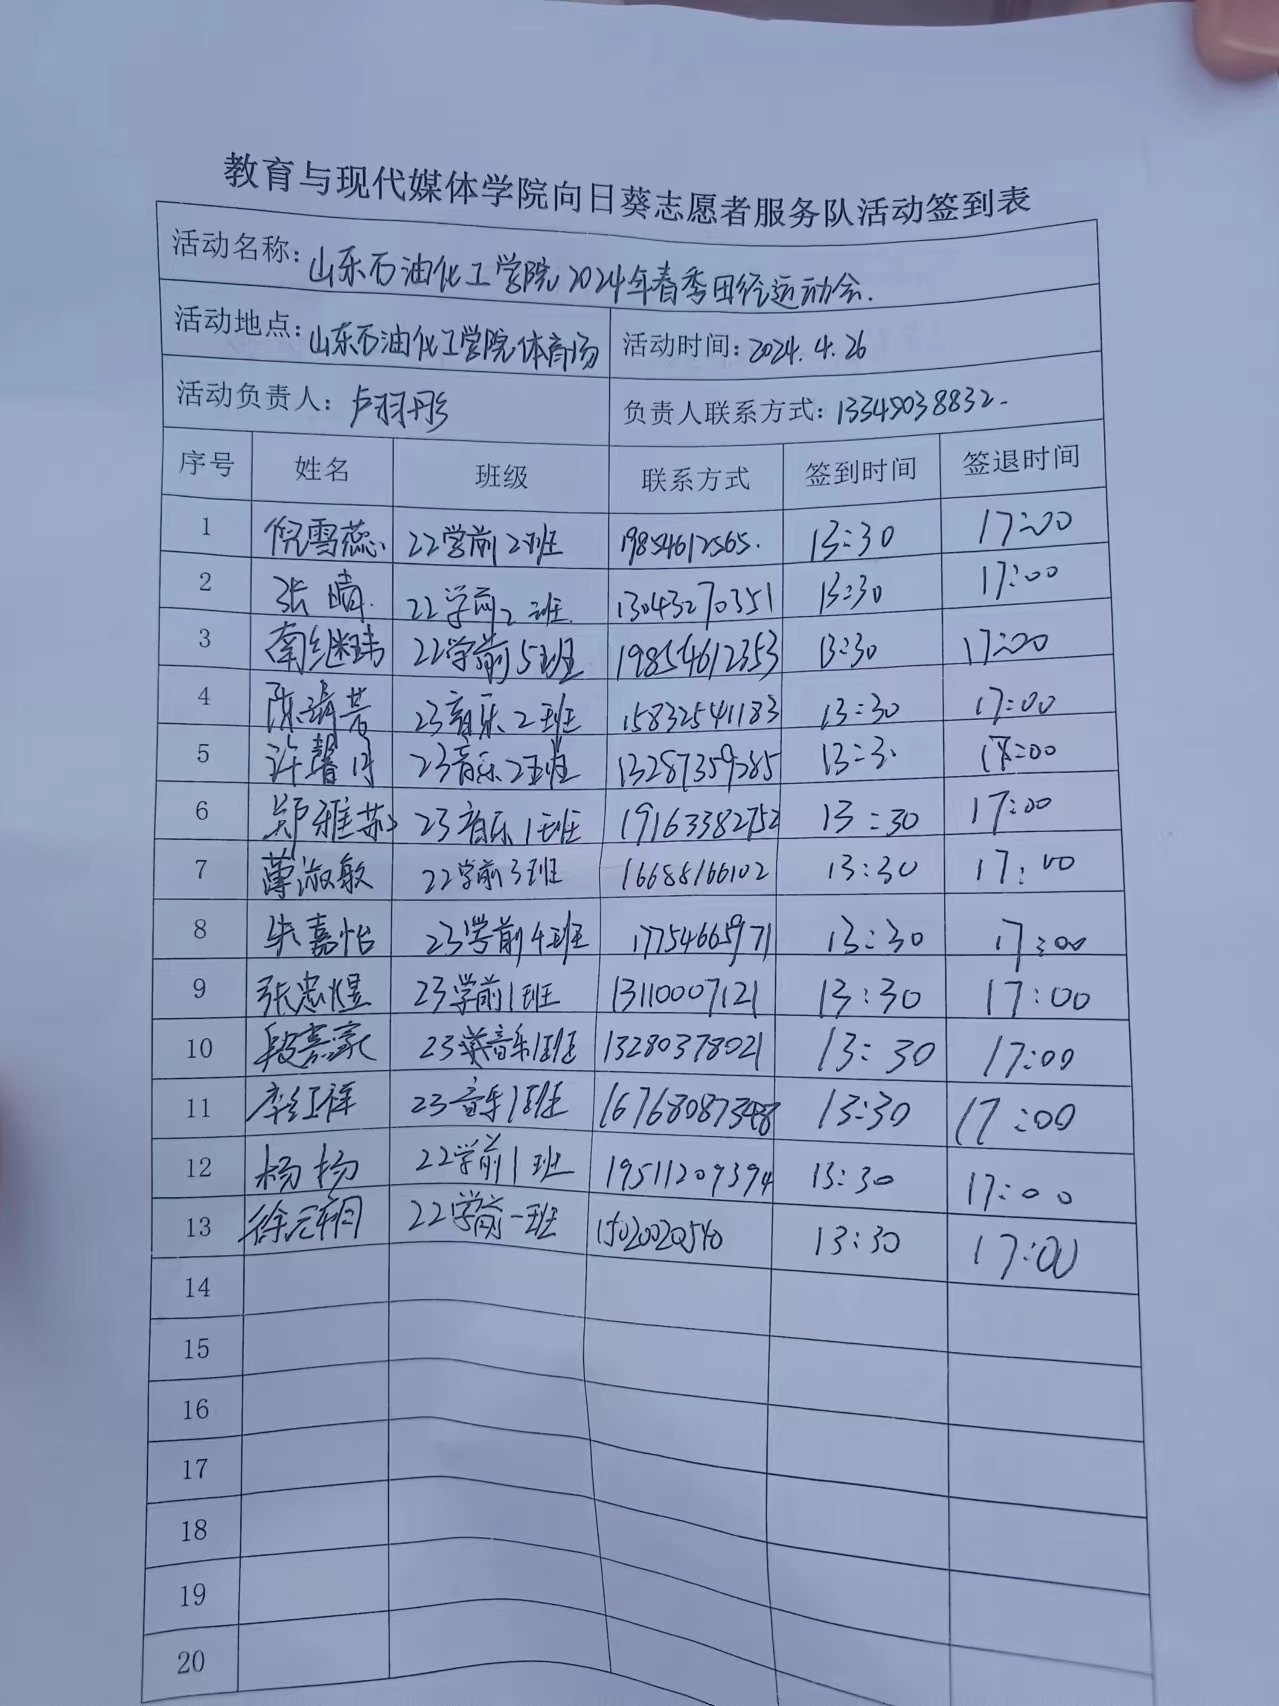 教育与现代媒体学院向日葵志愿者服务队活动签到表
活动名称：山东石油化工学院2024年春季田径运动会.
活动地点：山东石油化工学院体育场 活动时间：2024.4.26
活动负责人：卢羽彤 负责人联系方式：13345038832.
序号 姓名 班级 联系方式 签到时间 签退时间
1 倪雪蕊 22学前2班 19854612565. 13:30 17:00
2 张晴. 22学前2班. 13043270351 13:30 17:00
3 南继玮 22学前5班 19854612353 13:30 17:00
4 陈靖芳 23音乐2班 15832541183 13:30 17:00
5 许馨月 23音乐2班 13287359285 13:3. 17:00
6 郑雅苏 23音乐1班 19163382752 13:30 17:00
7 薄淑敏 22学前3班 16688166102 13:30 17:00
8 朱嘉怡 23学前4班 17754665971 13:30 17:00
9 张忠煜 23学前1班 13110007121 13:30 17:00
10 段嘉豪 23音乐1班 13280378021 13:30 17:00
11 李红祥 23音乐1班 13:30 17:00
12 杨扬 22学前1班 19511209394 13:30 17:00
13 徐元桐 22学前一班 15020020540 13:30 17:00
14
15
16
17
18
19
20